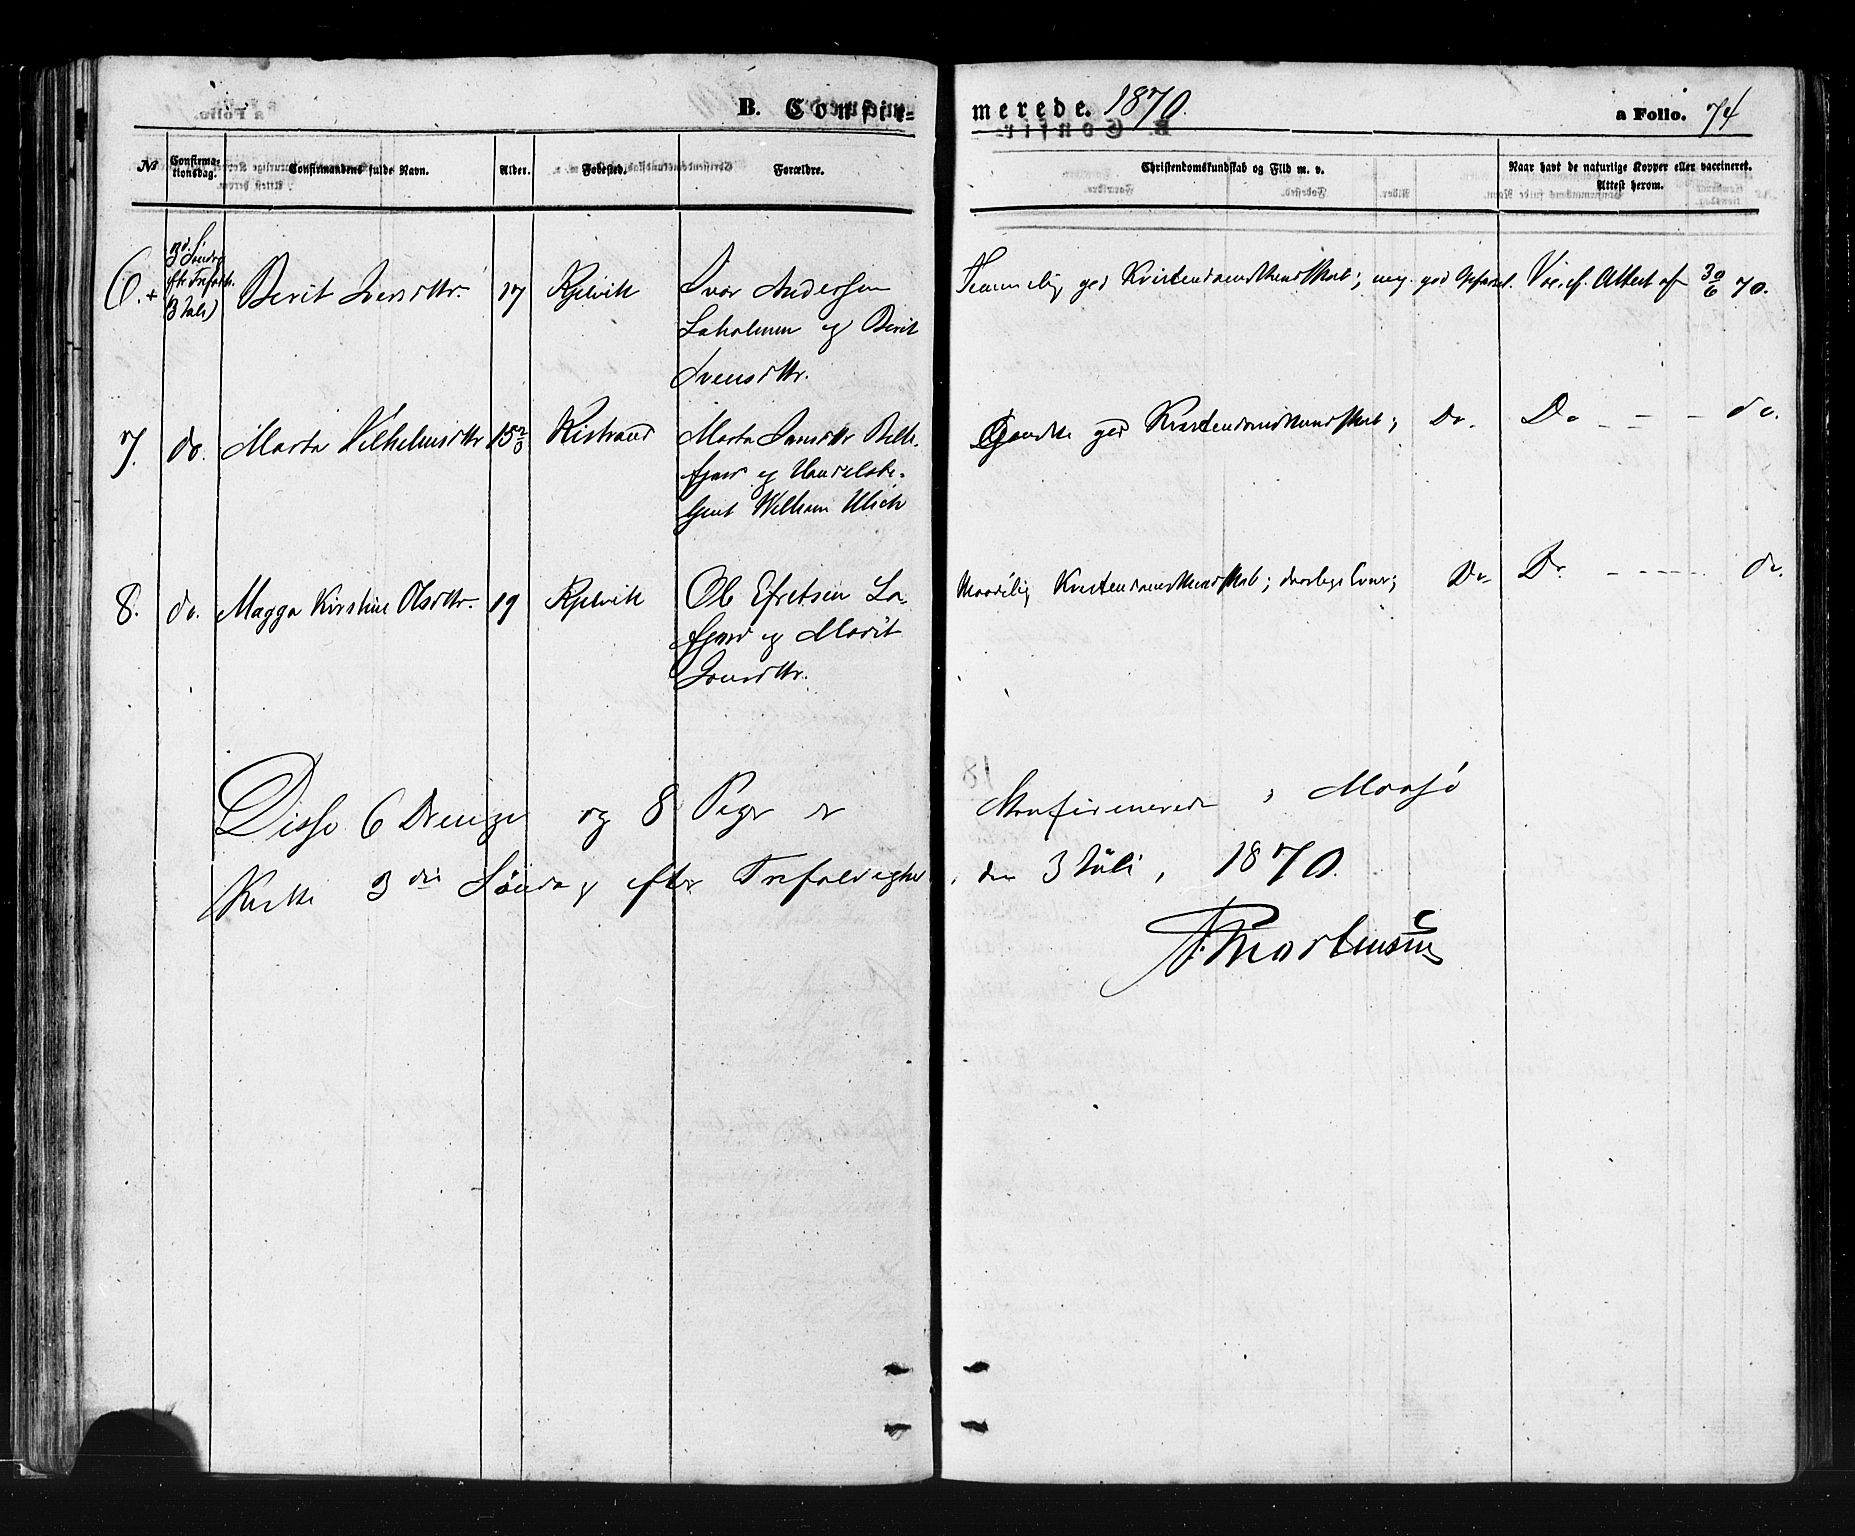 B. Confir=
merede. 1870.
a Folio. 74
No
Confirma-
tionsdag.
Confirmandens fulde Navn.
Alder.
Fødested.
Forældre.
Christendomskundskab og Flid m. v.
Naar havt de naturlige Kopper eller vaccineret.
Attest herom.
6. +
3d. Søndag
eftr Trefoldh.
(3 Juli)
Berit Iversdttr.
17
Kjelvik
Ivar Andersen
Laholmen og Berit
Svensdttr.
Temmelig god Kristendomskundskab; meg. god Opførsel.
Vac. ef. Attest af 30/6 70.
7.
do.
Marta Vilhelmsdttr
15
Kistrand
Marta Iversdttr
og Handelsbe-
tjent Wilhelm Ulich
Ganske god Kristendomskundskab;
Do.
Do
do.
8.
do.
Magga Kirstine Olsdttr.
19
Kjelvik
Ole Efretsen La-
fjord og Marit
Jonsdttr.
Maadelig Kristendomskundskab; daarlige Evner;
Do
Do.
do.
Disse 6 Drenge og 8 Piger er
Konfirmerede i Maasø
Kirke 3die Søndag efter Trefoldighed
, den 3 Juli, 1870.
Mortensen